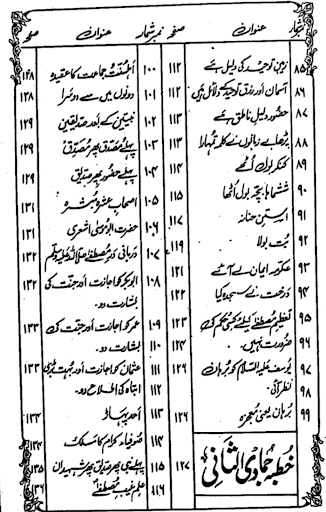 نمبر شمار عنوان صفحہ
۸۵ زمین توحید کی دلیل ہے ۱۱۲
۸۶ آسمان اور رزق توحید کے دلائل ہیں ۱۱۲
۸۷ حضور دلیل ناطق ہے ۱۱۳
۸۸ پڑھا بے زبانوں نے کلمہ تمہارا ۱۱۳
۸۹ کنکر بول اُٹھے ۱۱۴
۹۰ ششماہا بچہ بول اُٹھا ۱۱۵
۹۱ استن حنانہ ۱۱۷
۹۲ بُت بولا ۱۱۹
۹۳ عکرمہ ایمان لے آئے ۱۲۱
۹۴ درخت نے سجدہ کیا ۱۲۲
۹۵ تعظیم مصطفےٰ کیلئے کسی حکم کی ۱۲۳
۹۶ ضرورت نہیں۔ ۱۲۴
۹۷ یوسف علیہ السلام کو برہان ۱۲۶
۹۸ نظر آئی۔
۹۹ برہان یعنی معجزہ ۱۲۶
خطبہ جمادی الثانی ۱۲۷
نمبر شمار عنوان صفحہ
۱۰۰ اہلسنت جماعت کا عقیدہ ۱۲۸
۱۰۱ دونوں میں سے دوسرا ۱۲۸
۱۰۲ نبیین کے بعد صدیقین ۱۲۹
۱۰۳ پہلے مُصَدِّق پھر مُصَدَّق ۱۲۹
۱۰۴ پہلے حضور پھر صدیق ۱۲۹
۱۰۵ اصحاب عشرہ مبشرہ ۱۳۱
۱۰۶ حضرت ابو موسیٰ اشعری ۱۳۱
۱۰۷ دربانی در مصطفےٰ صلی اللہ علیہ وسلم ۱۳۲
۱۰۸ ابوبکر کو اجازت اور جنت کی ۱۳۲
بشارت دو۔
۱۰۹ عمر کو اجازت اور جنت کی ۱۳۳
۱۱۰ بشارت دو۔
۱۱۱ عثمان کو اجازت اور بہت بڑی
۱۱۲ ابتلاء کی اطلاع دو۔
۱۱۳ اُحد پہاڑ ۱۳۴
۱۱۴ صوفیاء کرام کا مسلک ۱۳۴
۱۱۵ پہلے نبی پھر صدیق پھر شہیدان ۱۳۵
۱۱۶ علم غیب مصطفےٰ ۱۳۶